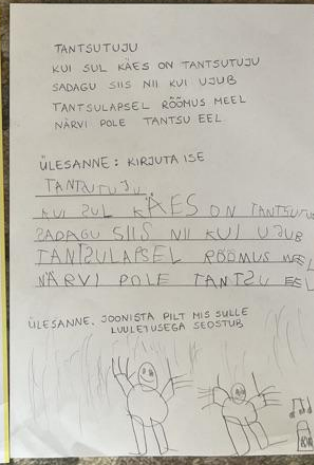 TANTSUTUJU
KUI SUL KÄES ON TANTSUTUJU
SADAGU SIIS NII KUI UJUB
TANTSULAPSEL RÕÕMUS MEEL
NÄRVI POLE TANTSU EEL
ÜLESANNE: KIRJUTA ISE
TANTSUTUJU
KUI SUL KÄES ON TANTSUTUJU
SADAGU SIIS NII KUI UJUB
TANTSULAPSEL RÕÕMUS MEEL
NÄRVI POLE TANTSU EEL
ÜLESANNE. JOONISTA PILT MIS SULLE
LUULETUSEGA SEOSTUB